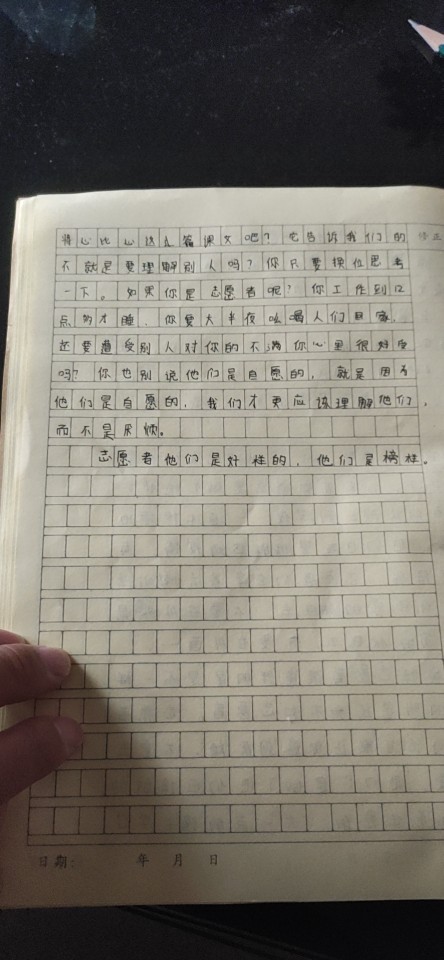 将心比心这立篇课文吧？它告诉我们的
不就是要理解别人吗？你只要换位思考
一下。如果你是志愿者呢？你工作到12
点多才睡，你要大半夜吆喝人们回家，
还要遭受别人对你的不满你心里很好受
吗？你也别说他们是自愿的，就是因为
他们是自愿的，我们才更应该理解他们，
而不是厌烦。
志愿者他们是好样的，他们是榜样。
日期： 年 月 日